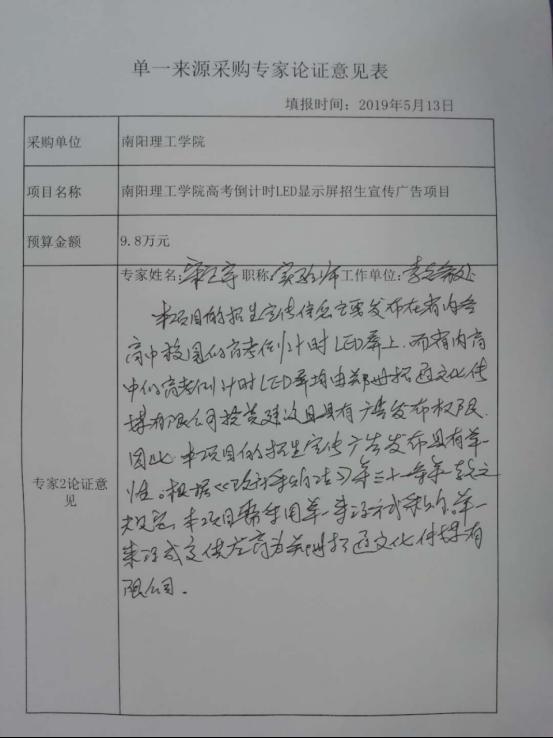 单一来源采购专家论证意见表
填报时间：2019年5月13日
采购单位 南阳理工学院
项目名称 南阳理工学院高考倒计时LED显示屏招生宣传广告项目
预算金额 9.8万元
专家2论证意见
专家姓名: 职称: 实验师 工作单位:
本项目的招生宣传信息它要发布在省内各
高中校园的高考倒计时LED屏上,而省内高
中的高考倒计时LED屏均由郑州 通文化传
媒有限公司投资建设且具有广告发布权限.
因此 本项目的招生宣传广告发布具有单一
性。根据《政府采购法》第三十一条第一款之
规定,本项目需采用单一来源方式采购,单一
来源成交供应商为郑州 通文化传媒有
限公司.